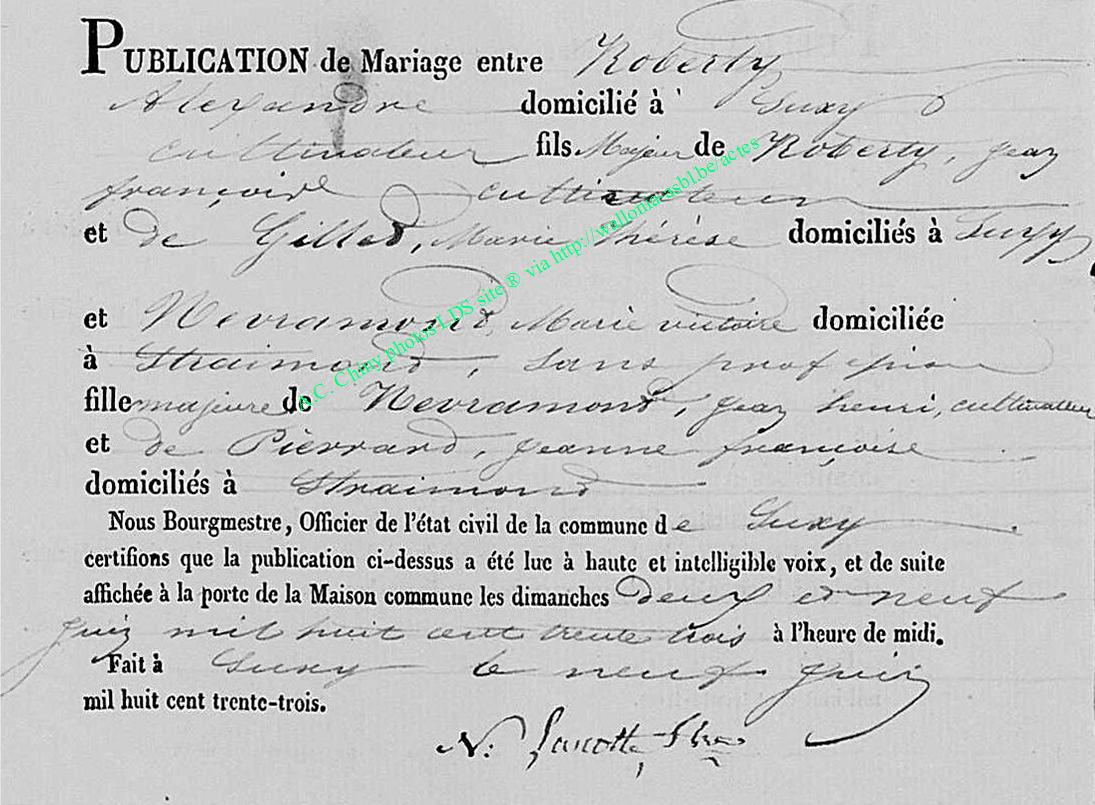 PUBLICATION de Mariage entre Roberty
Alexandre domicilié à Suxy
cultivateur fils Majeur de Roberty, jean
françois cultivateur
et de Gillet, Marie Thérèse domiciliés à Suxy
et Nevramond, Marie victoire domiciliée
à Straimond, sans profession
fille majeure de Nevramond, jean henri, cultivateur
et de Pierrard, jeanne françoise
domiciliés à Straimond
Nous Bourgmestre, Officier de l'état civil de la commune de Suxy
certifions que la publication ci-dessus a été lue à haute et intelligible voix, et de suite
affichée à la porte de la Maison commune les dimanches deux et neuf
juin mil huit cent trente trois à l'heure de midi.
Fait à Suxy le neuf juin
mil huit cent trente-trois.
N:
A.C. Chiny photos LDS site ® via http://wallonia-asbl.be/actes